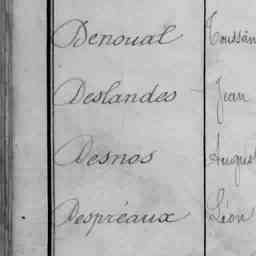 Denoual Toussain
Deslandes Jean
Desnos August
Despréaux Léon